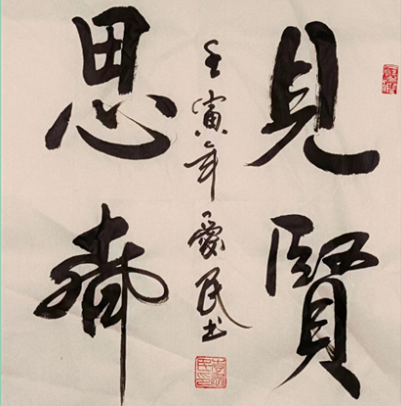 見賢
思齊
壬寅年愛民書